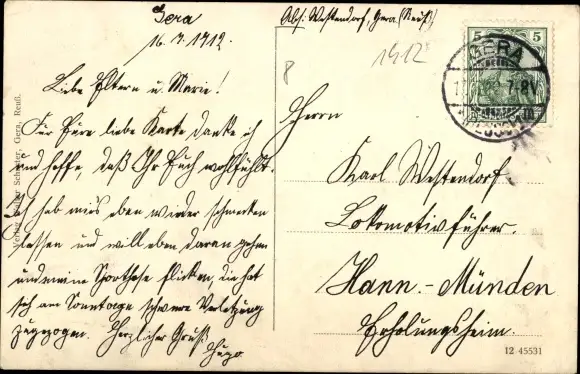 Gera
16.7.1912.
Liebe Eltern u. Marie!
Für Eure liebe Karte danke ich
und hoffe daß Ihr Euch wohlfühlt.
Ich hab mirs eben wieder schmecken
lassen und will eben daran gehen
und meine Sporthose flicken, die hat
sich am Sonntage schwere Verletzung
zugezogen. Herzlicher Gruß
Hugo.
Verlag Schlotter, Gera, Reuß.
Abs: Westendorf, Gera (Reuß)
1912
8
5 5
GERA
7-8V
Herrn
Karl Westendorf
Lokomotivführer.
Hann.-Münden
Erholungsheim.
12 45531